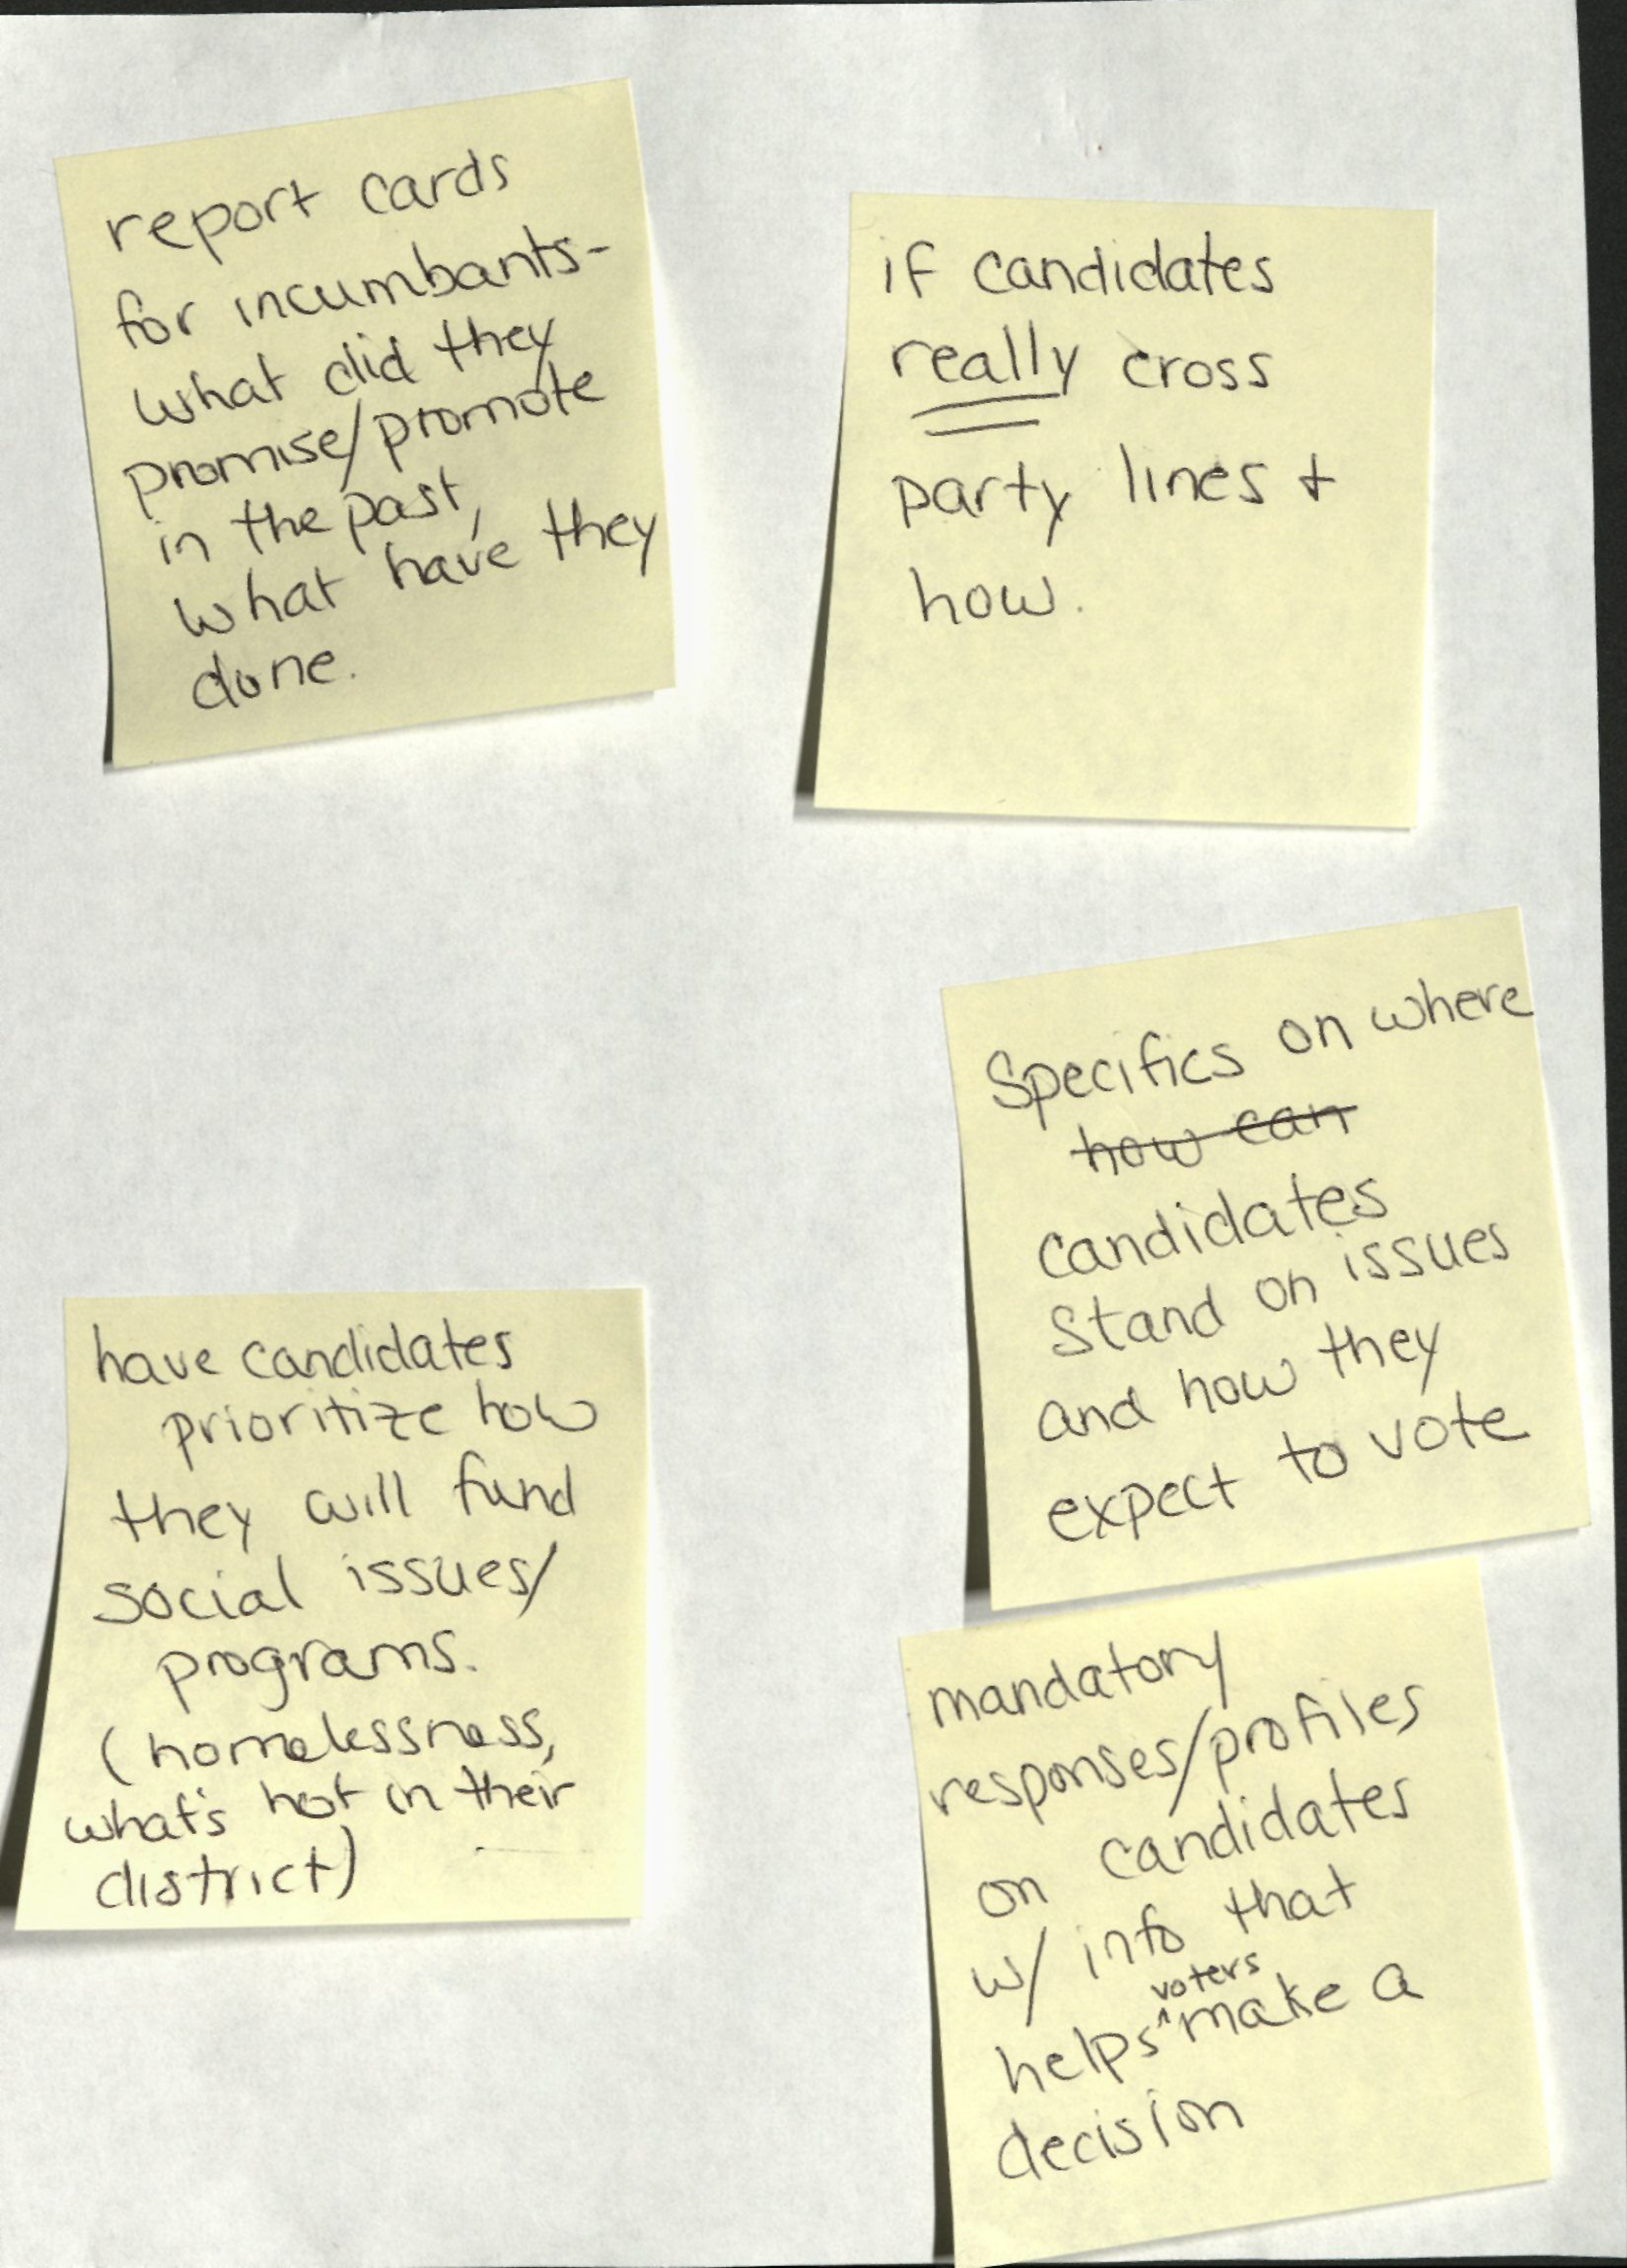 report cards
for incumbants-
what did they
promise/promote
in the past,
what have they
done.
if candidates
really cross
party lines +
how.
Specifics on where
how can
candidates
Stand on issues
and how they
expect to vote
have candidates
prioritize how
they will fund
social issues/
programs.
(homelessness,
what's hot in their
district)
mandatory
responses/profiles
on candidates
w/ info that
helps ^voters make a
decision